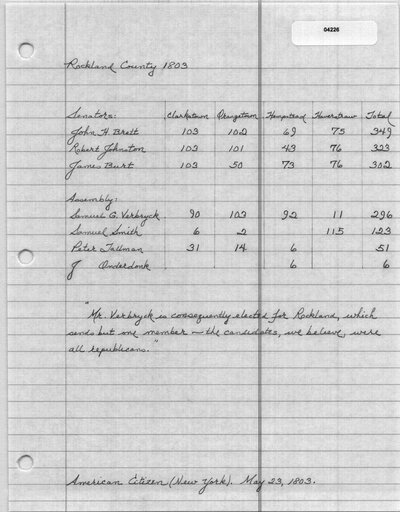 04226
Rockland County 1803
Senators: Clarkstown Orangetown Hempstead Haverstraw Total
John H Brett 103 102 69 75 349
Robert Johnston 103 101 43 76 323
James Burt 103 50 73 76 302
Assembly:
Samuel G. Verbryck 90 103 92 11 296
Samuel Smith 6 2 115 123
Peter Tallman 31 14 6 51
J Onderdonk 6 6
"Mr. Verbryck is consequently elected for Rockland, which
sends but one member — the candidates, we believe, were
all republicans."
American Citizen (New York). May 23, 1803.